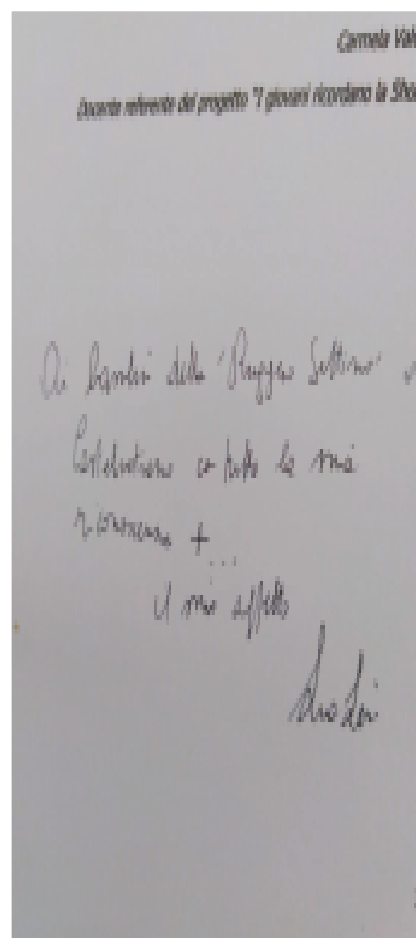 Carmela Val
Docente referente del progetto "I giovani ricordano la Shoa
Ai bambini della "Ruggero Settimo"
con tutta la mia
riconoscenza +
...
il mio affetto